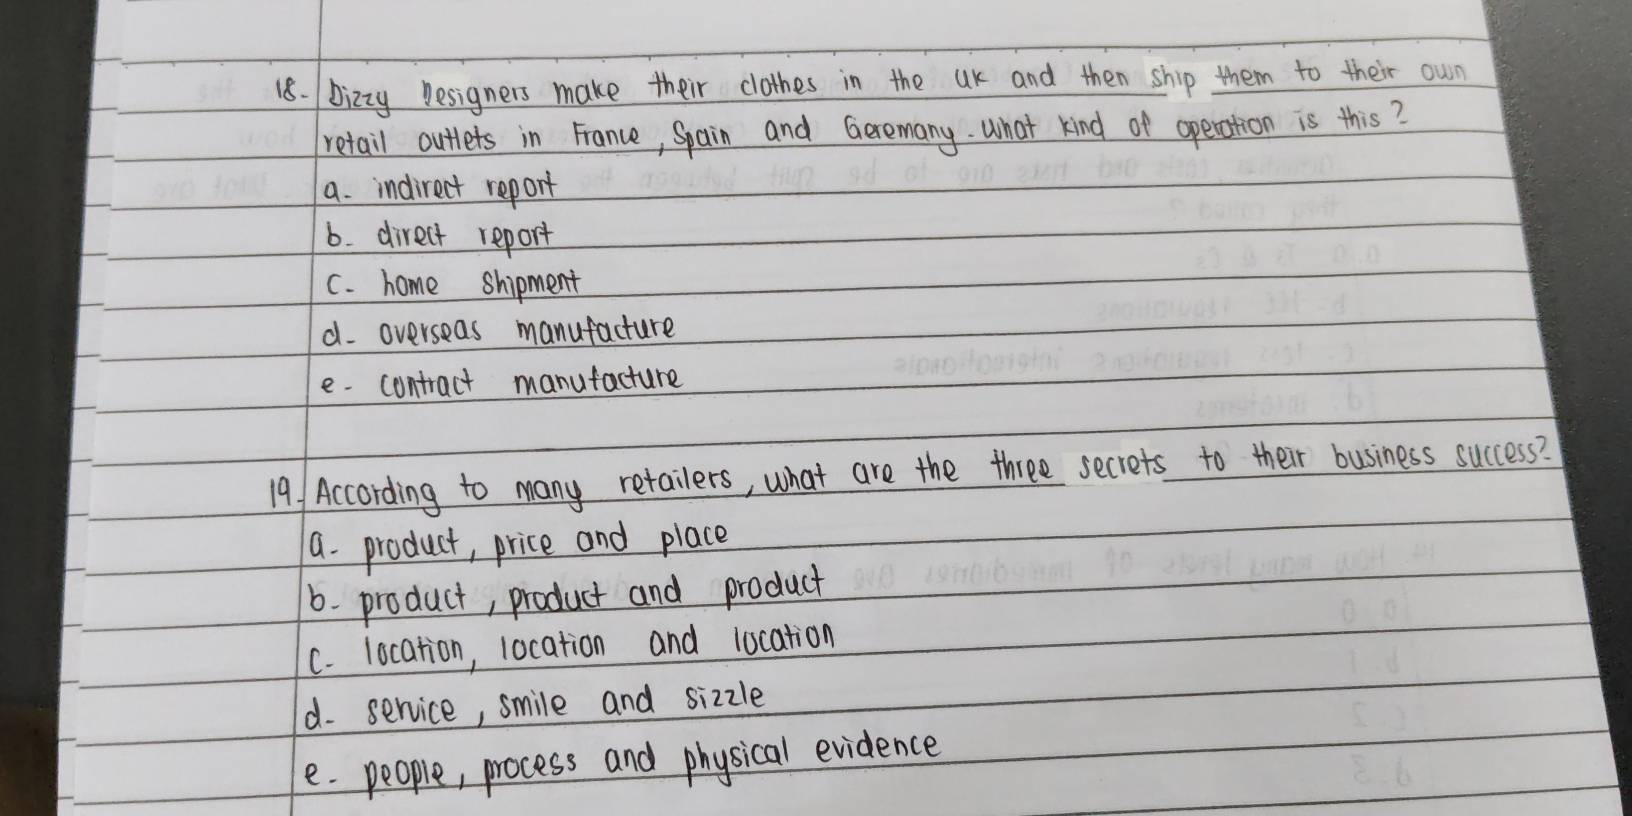 18. Dizzy Designers make their clothes in the UK and then ship them to their own
retail outlets in France, Spain and Geremany. What kind of operation is this?
a. indirect report
b. direct report
c. home shipment
d. overseas manufacture
e. contract manufacture
19. According to many retailers, what are the three secrets to their business success?
a. product, price and place
b. product, product and product
c. location, location and location
d. service, smile and sizzle
e. people, process and physical evidence